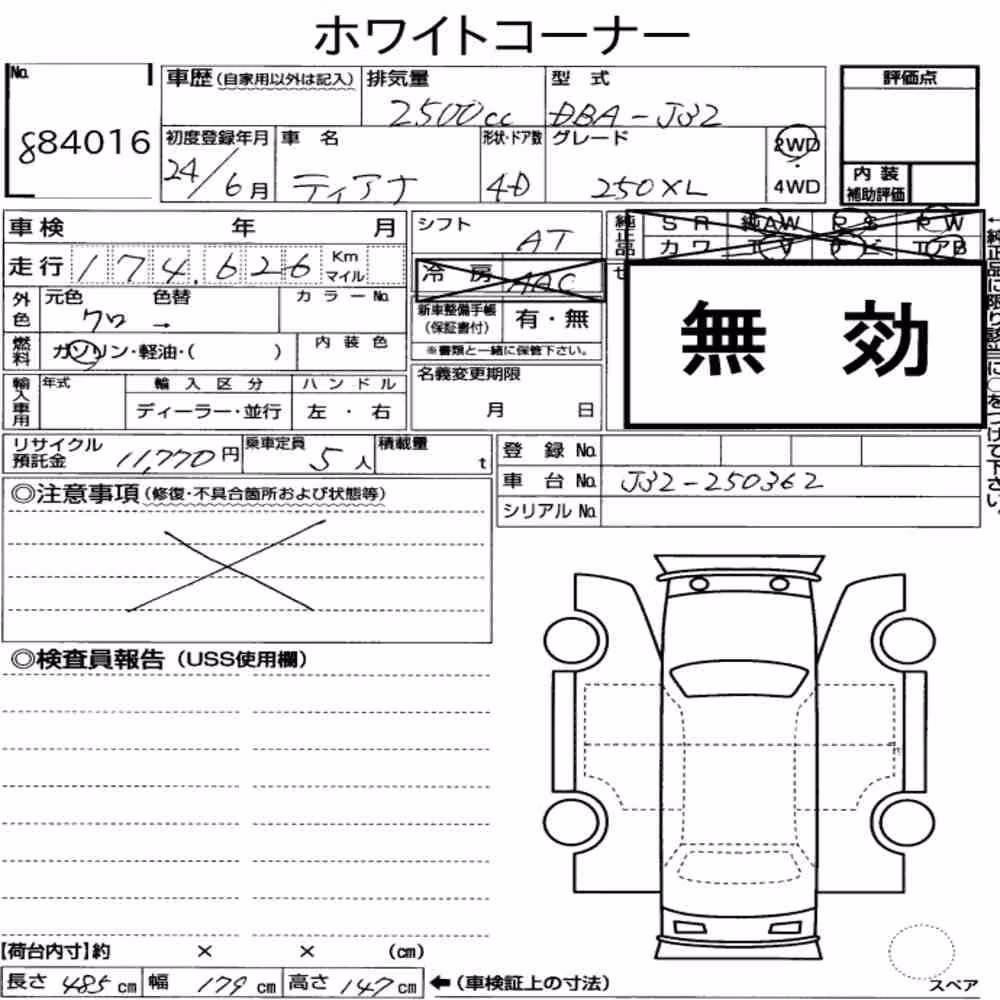 ホワイトコーナー
No.
884016
車歴 (自家用以外は記入)
排気量
2500cc
型 式
DBA-J32
評価点
内 装
補助評価
初度登録年月
24/6月
車 名
ティアナ
形状・ドア数
4D
グレード
250XL
2WD
・
4WD
車検 年 月
走行 174,626 Km
マイル
外色
元色 色替
クロ →
カラーNo.
燃料
ガソリン・軽油・( )
内 装 色
輸入車用
年式
輸 入 区 分
ディーラー・並行
ハ ン ド ル
左 ・ 右
シフト
AT
冷 房
AAC
新車整備手帳
(保証書付)
有・無
※書類と一緒に保管下さい。
名義変更期限
月 日
純正品
S R 純AW P S P W
カ ワ T V ナ ビ エアB
セ
無 効
←純正品に限り該当に○をつけて下さい。
リサイクル
預託金
11,770円
乗車定員
5人
積載量
t
登 録 No.
車 台 No. J32-250362
シリアル No.
◎注意事項 (修復・不具合箇所および状態等)
◎検査員報告 (USS使用欄)
【荷台内寸】約 × × (cm)
長さ 485 cm 幅 179 cm 高さ 147 cm
←(車検証上の寸法)
スペア